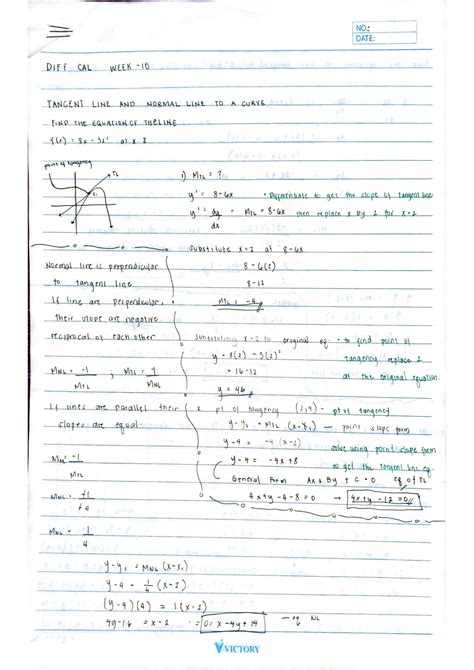 NO.:
DATE:
DIFF CAL WEEK -10
TANGENT LINE AND NORMAL LINE TO A CURVE
FIND THE EQUATION OF THE LINE
f(x) = 8x - 3x² at x = 2
point of tangency
TL
1) MTL = ?
y' = 8 - 6x • Differentiate to get the slope of tangent line
y' = dy/dx = MTL = 8 - 6x then replace x by 2 for x = 2
substitute x = 2 at 8 - 6x
Normal line is perpendicular
8 - 6(2)
to tangent line
8 - 12
If line are perpendicular,
MTL =
their slope are negative
reciprocal of each other
Substituting x = 2 to original eq - to find point of
y = 8(2) - 3(2)²
tangency replace 2
MNL = -1/MTL ; MTL = 1/MNL
= 16 - 12
at the original equation.
y = 4
If lines are parallel their
pt of tangency (2,4) - pt of tangency
slopes are equal.
y - y₁ = MTL (x - x₁) — point slope form
y - 4 = -4 (x - 2)
solve using point slope form
MNL = -1/MTL
y - 4 = -4x + 8
to get the tangent line eq.
General Form Ax + By + C = 0 eq of TL
MNL = +1/+4
4x + y - 4 - 8 = 0 → 4x + y - 12 = 0
MNL = 1/4
y - y₁ = MNL (x - x₁)
y - 4 = 1/4 (x - 2)
(y - 4)(4) = 1(x - 2)
4y - 16 = x - 2 = 0 = x - 4y + 14 — eq NL
VICTORY